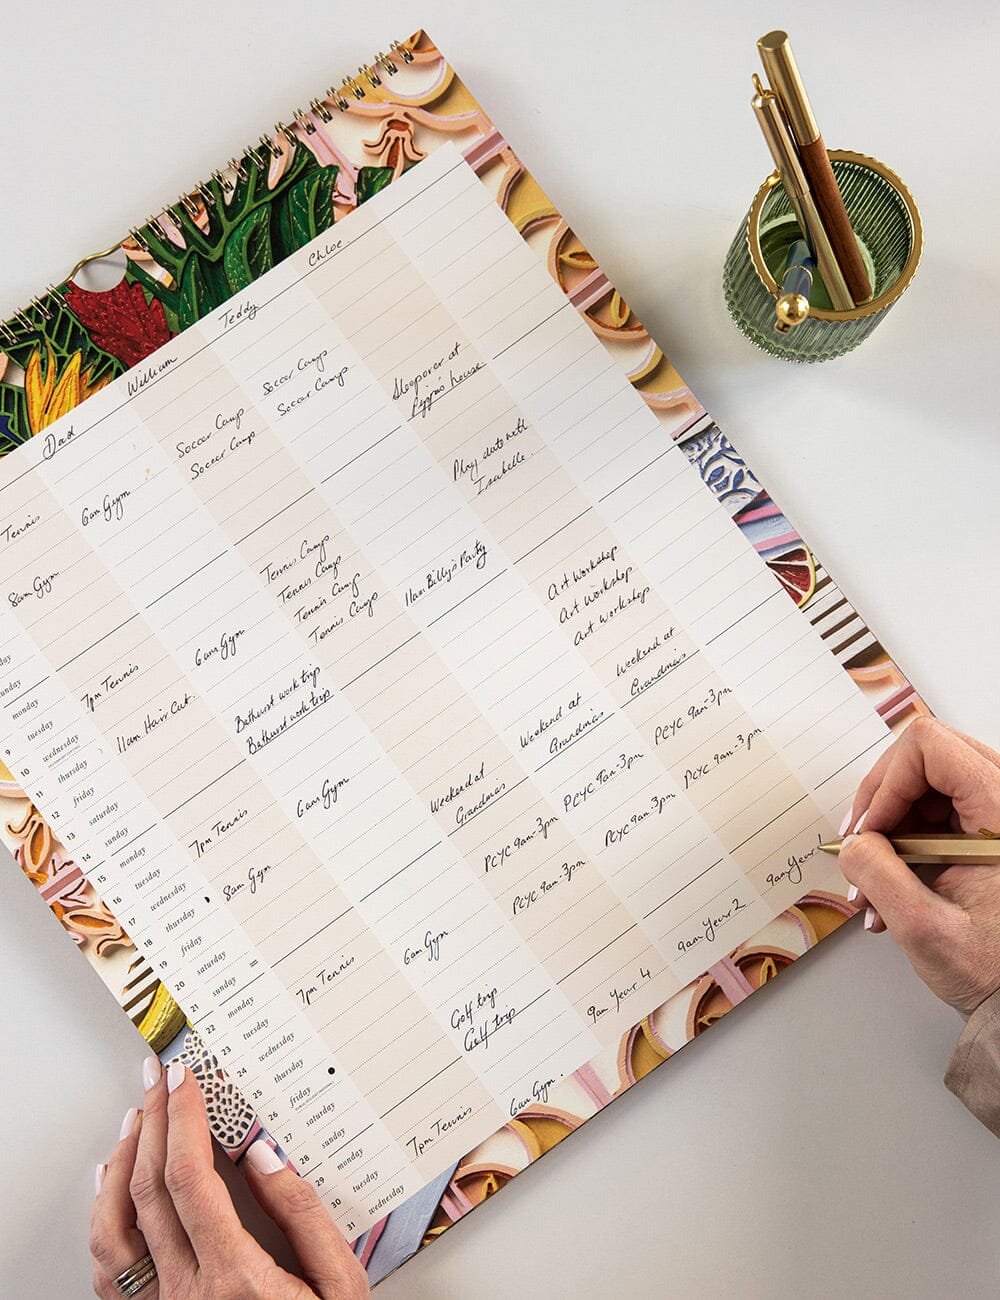 Dad
William
Teddy
Chloe.
monday
9 tuesday
10 wednesday
11 thursday
12 friday
13 saturday
14 sunday
15 monday
16 tuesday
17 wednesday
18 thursday
19 friday
20 saturday
21 sunday
22 monday
23 tuesday
24 wednesday
25 thursday
26 friday
27 saturday
28 sunday
29 monday
30 tuesday
31 wednesday
Tennis
8am Gym
7pm Tennis
11am Hair Cut.
7pm Tennis
8am Gym
7pm Tennis
7pm Tennis
6am Gym
6am Gym
Bathurst work trip
Bathurst work trip
6am Gym
6am Gym
Golf trip
Golf trip
6am Gym.
Soccer Camp
Soccer Camp
Tennis Camp
Tennis Camp
Tennis Camp
Tennis Camp
Weekend at
Grandmas
PCYC 9am-3pm
PCYC 9am-3pm
9am Year 4
Soccer Camp
Soccer Camp
11am Billy's Party
Weekend at
Grandmas
PCYC 9am-3pm
PCYC 9am-3pm
9am Year 2
Sleepover at
Pippa's house
Play date with
Isabelle.
Art Workshop
Art Workshop
Art Workshop
Weekend at
Grandmas
PCYC 9am-3pm
PCYC 9am-3pm
9am Year 1